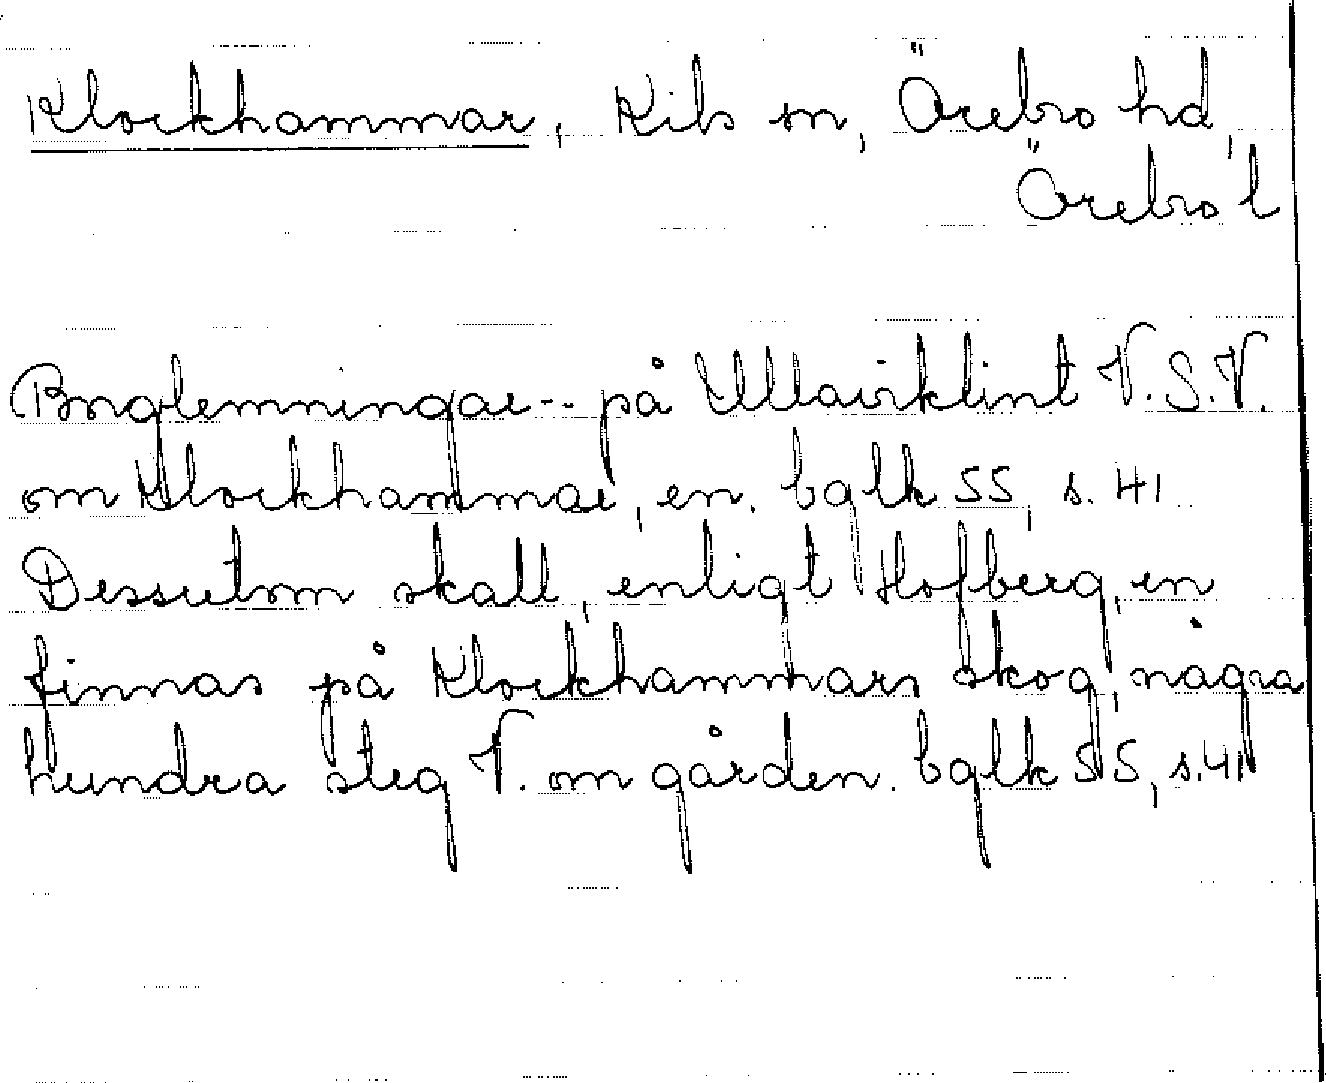 Klockhammar, Kils sn, Örebro hd,
Örebro l
Borglemningar -- på Ullavi klint V.S.V.
om Klockhammar, en. bglk 55, s. 41
Dessutom skall, enligt Hofberg, en
finnas på Klockhammars skog, några
hundra steg V. om gården. bglk 55, s. 41